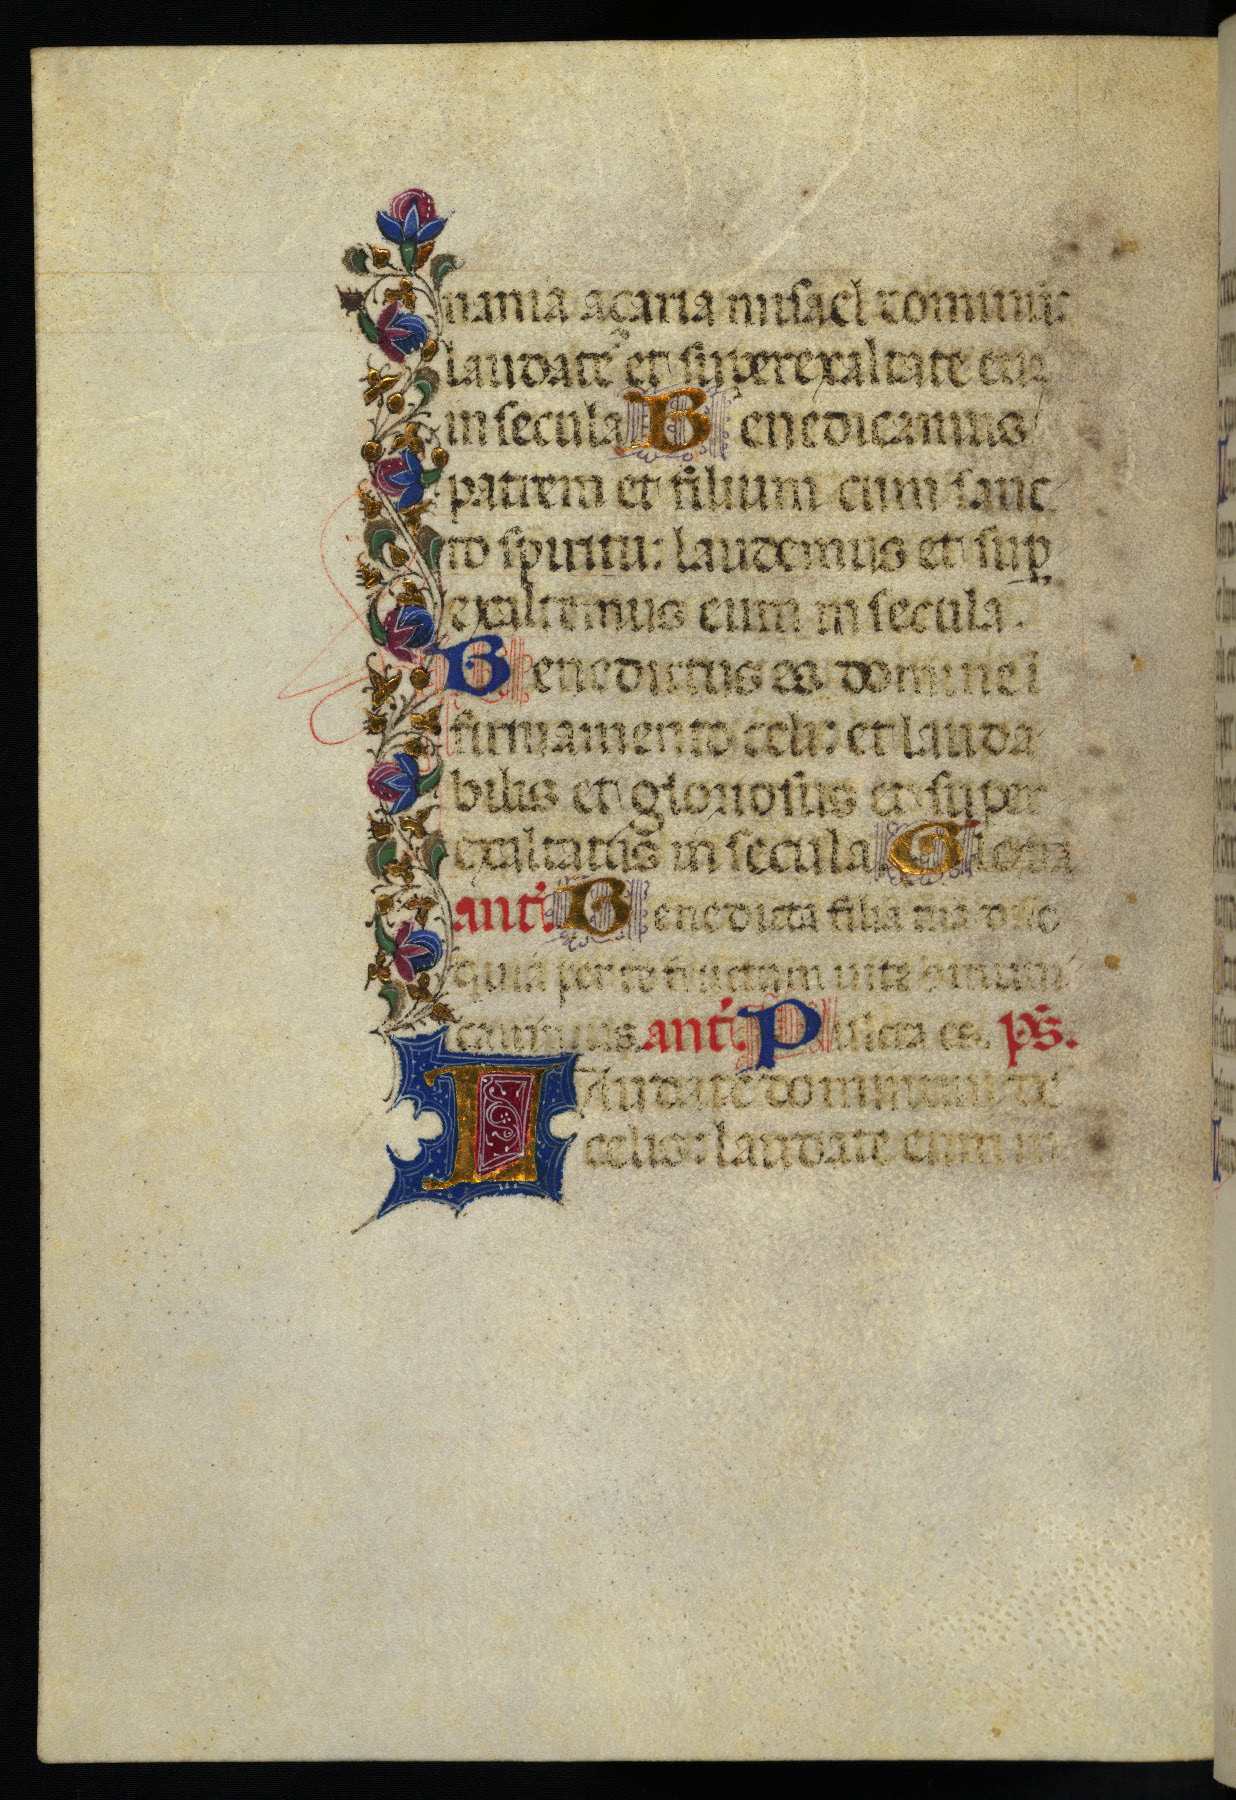 nania açaria misael domini:
laudate et superexaltate eũ
in secula Benedicamus
patrem et filium cum sanc
to spiritu: laudemus et sup
exaltemus eum in secula.
Benedictus es domine i
firmamento celi: et lauda
bilis et gloriosus et super
exaltatus in secula Gloria
ant. Benedicta filia tu a dño
quia per te fructum vite
cavimus. ant. Pulcra es. ps.
Laudate dominum de
celis: laudate eum in